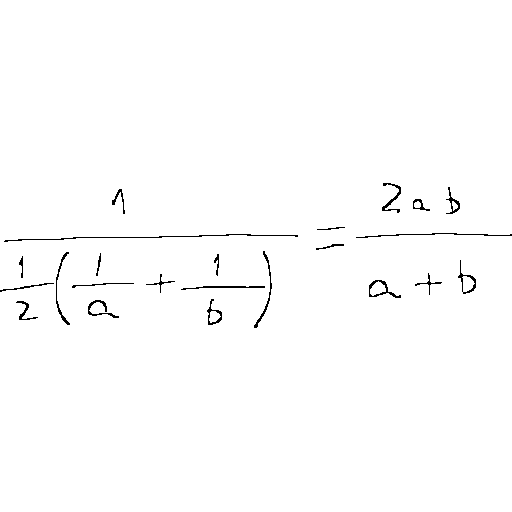 \frac{1}{\frac{1}{2}\left(\frac{1}{a}+\frac{1}{b}\right)}=\frac{2ab}{a+b}